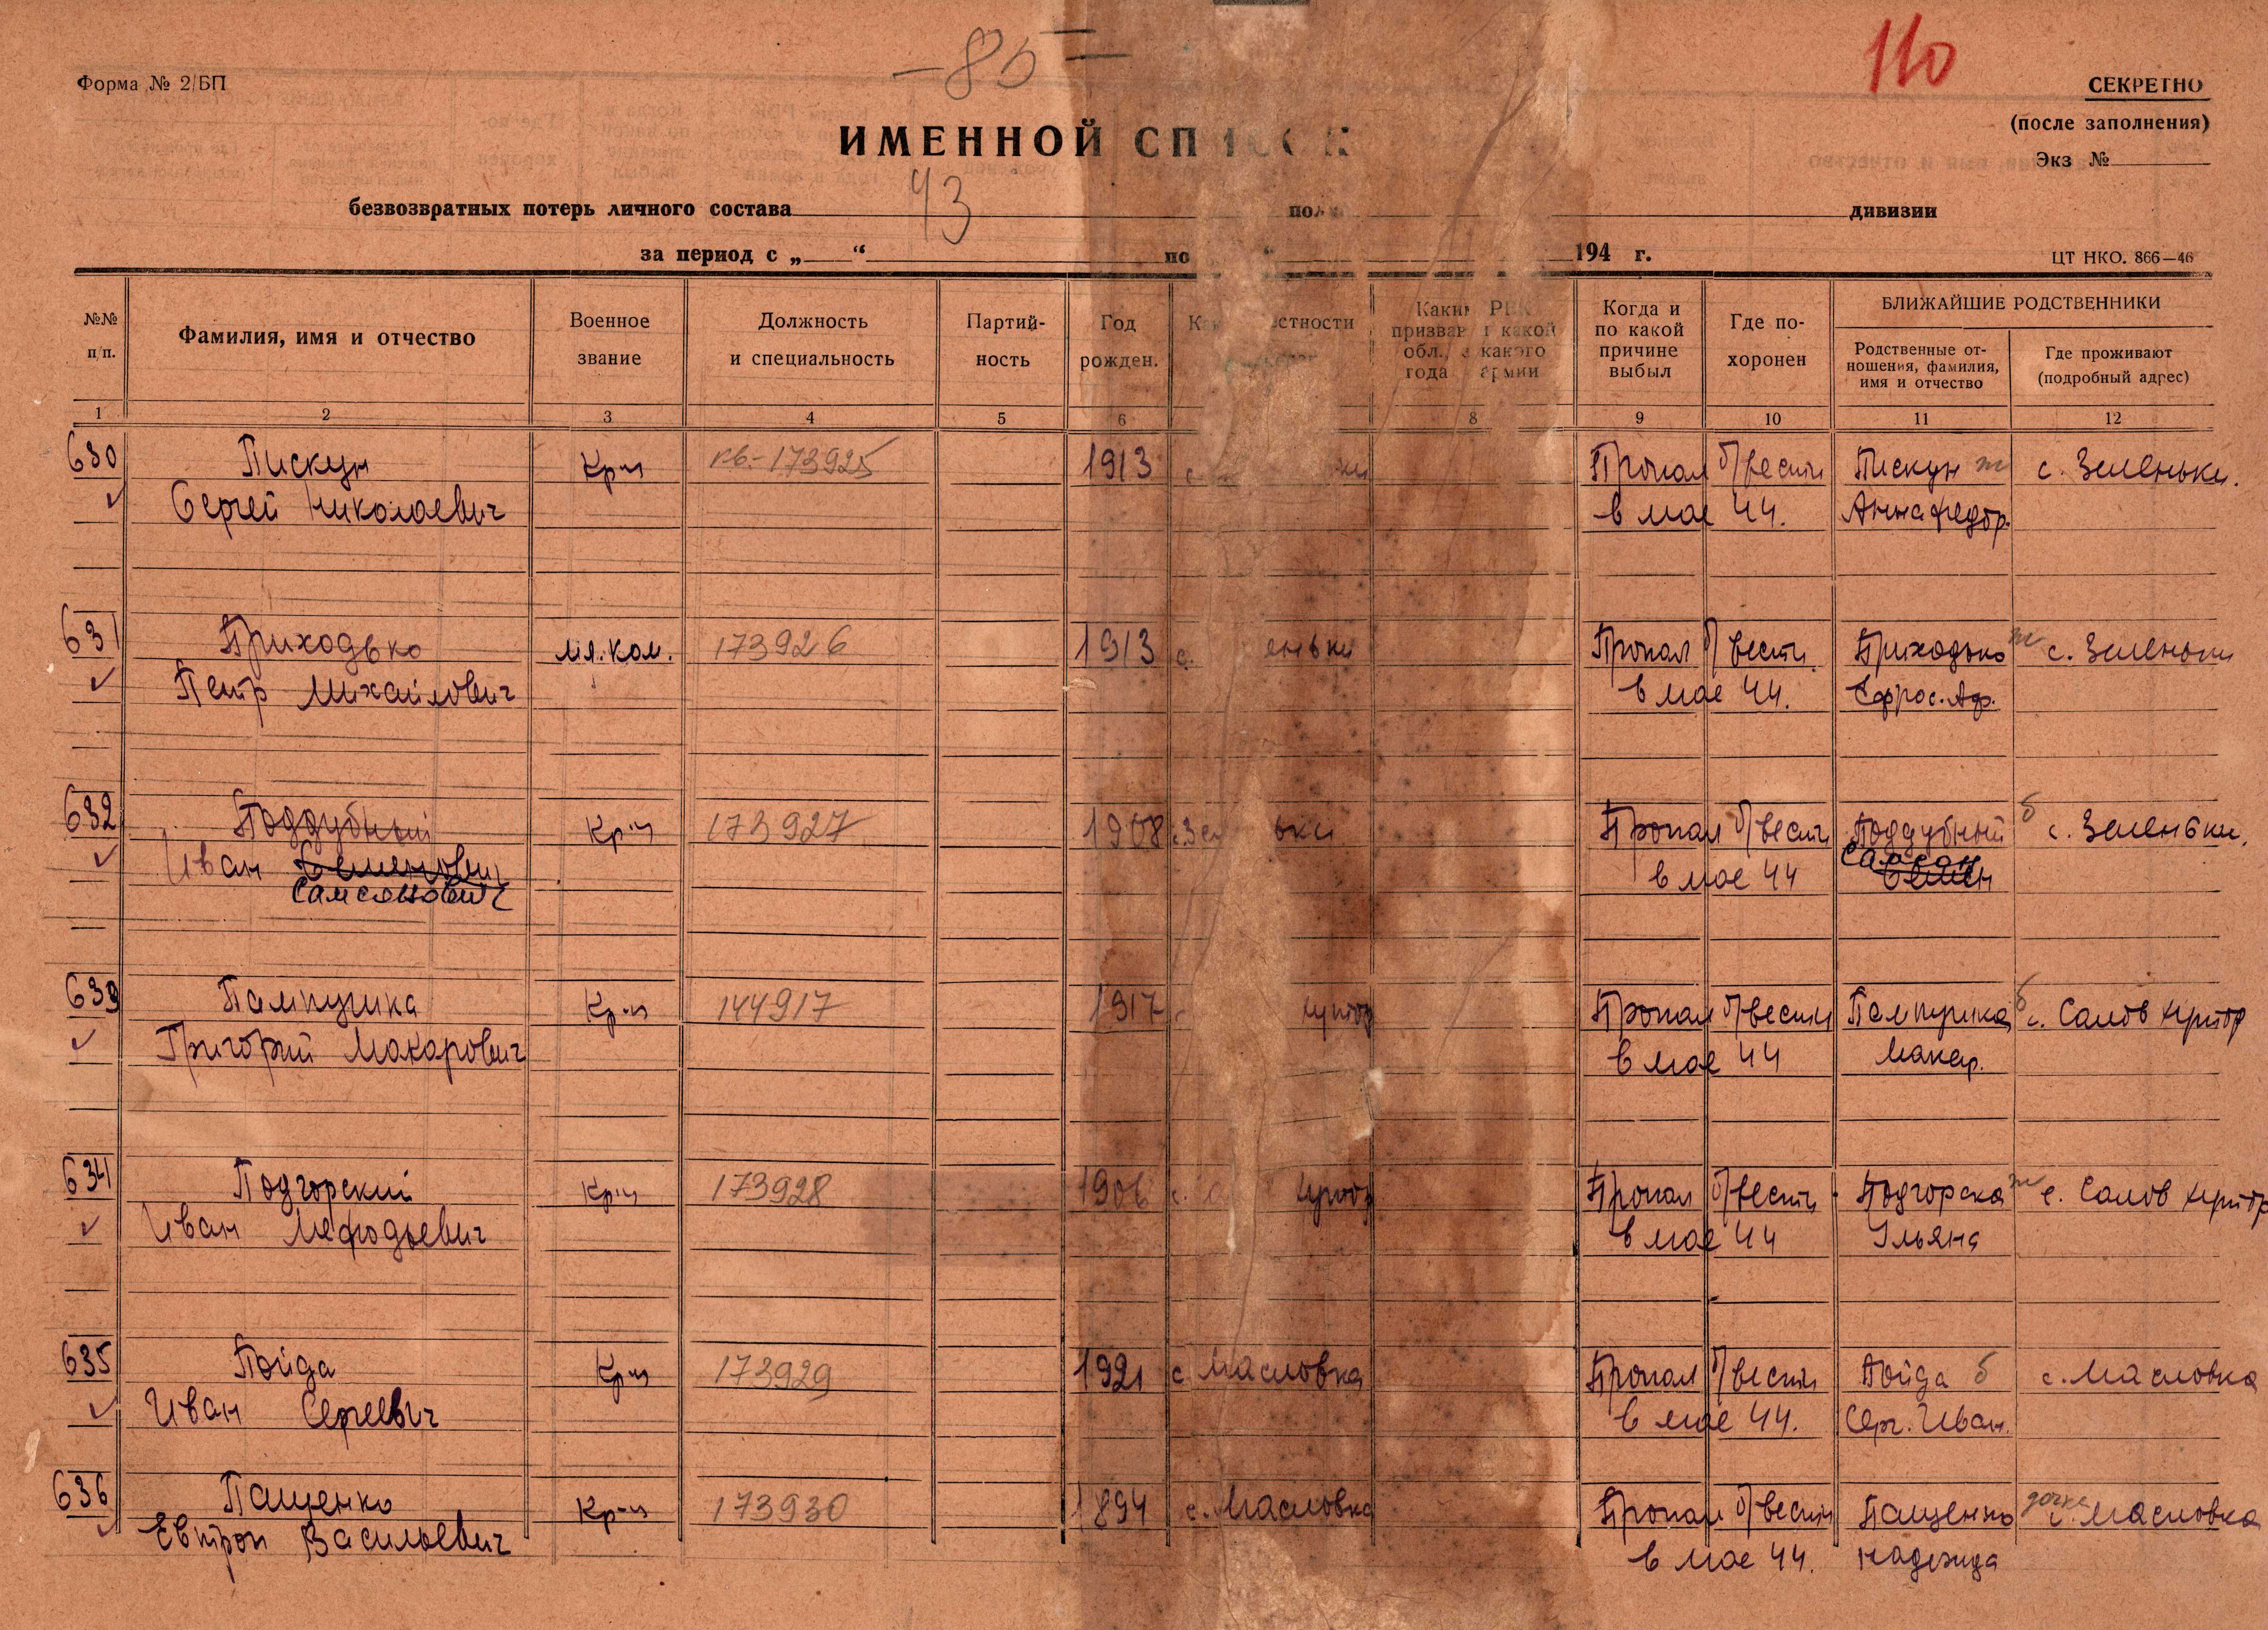 - 85 =
110
Форма № 2/БП
СЕКРЕТНО
(после заполнения)
Экз №
ИМЕННОЙ СПИСОК
43
безвозвратных потерь личного состава полка дивизии
за период с „ “ по “ 194 г.
ЦТ НКО. 866—46
№№ п/п.
Фамилия, имя и отчество
Военное звание
Должность и специальность
Партий- ность
Год рожден.
Каким РВК призван
Когда и по какой причине выбыл
Где по- хоронен
БЛИЖАЙШИЕ РОДСТВЕННИКИ
Родственные от- ношения, фамилия, имя и отчество
Где проживают (подробный адрес)
1 2 3 4 5 6 8 9 10 11 12
630 Пискун Кр-ц кв.-173925 1913 с. Пропал б/вести Пискун ж с. Зеленьки.
Сергей Николаевич в мае 44. Анна Федор.
631 Приходько мл. ком. 173926 1913 с. еньки Пропал б/вести Приходько ж с. Зеленьки
Петр Михайлович в мае 44. Ефрос. Аф.
632 Поддубный Кр-ц 173927 1908 с. Зе ьки Пропал б/вести Поддубный б с. Зеленьки.
Иван Семенович в мае 44 Самсон
Самсонович Семен
633 Пампушка Кр-ц 144917 1917 хутор Пропал б/вести Пампушка б с. Салов хутор
Григорий Макарович в мае 44 Макар.
634 Подгорский Кр-ц 173928 1906 с. хутор Пропал б/вести Подгорска ж с. Салов хутор
Иван Мефодьевич в мае 44 Ульяна
635 Пойда Кр-ц 173929 1921 с. Масловка Пропал б/вести Пойда б с. Масловка
Иван Сергеевич в мае 44. Серг. Иван.
636 Пащенко Кр-ц 173930 1894 с. Масловка Пропал б/вести Пащенко дочка с. Масловка
Евтроп Васильевич в мае 44. Надежда